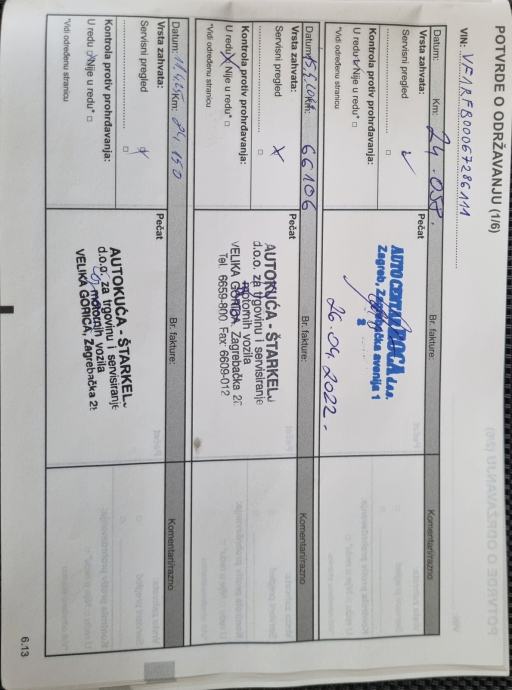 POTVRDE O ODRŽAVANJU (1/6)
VIN: VF1RFB00067286111
Datum: Km: 24.058. Br. fakture: Komentari/razno
Vrsta zahvata: Pečat
Servisni pregled ✓
Kontrola protiv prohrđavanja:
U redu Nije u redu* □
*Vidi određenu stranicu
AUTO CENTAR BOCA d.o.o.
Zagreb, Zagrebačka avenija 1
26.04.2022.
Datum: Km: 66106 Br. fakture: Komentari/razno
Vrsta zahvata: Pečat
Servisni pregled X
Kontrola protiv prohrđavanja:
U redu Nije u redu* □
*Vidi određenu stranicu
AUTOKUĆA - ŠTARKELJ
d.o.o. za trgovinu i servisiranje
motornih vozila
VELIKA GORICA, Zagrebačka
Tel. 6659-800 Fax 6609-012
Datum: Km: Br. fakture: Komentari/razno
Vrsta zahvata: Pečat
Servisni pregled X
Kontrola protiv prohrđavanja:
U redu Nije u redu* □
*Vidi određenu stranicu
AUTOKUĆA - ŠTARKEL
d.o.o. za trgovinu i servisiranje
motornih vozila
VELIKA GORICA, Zagrebačka
6.13